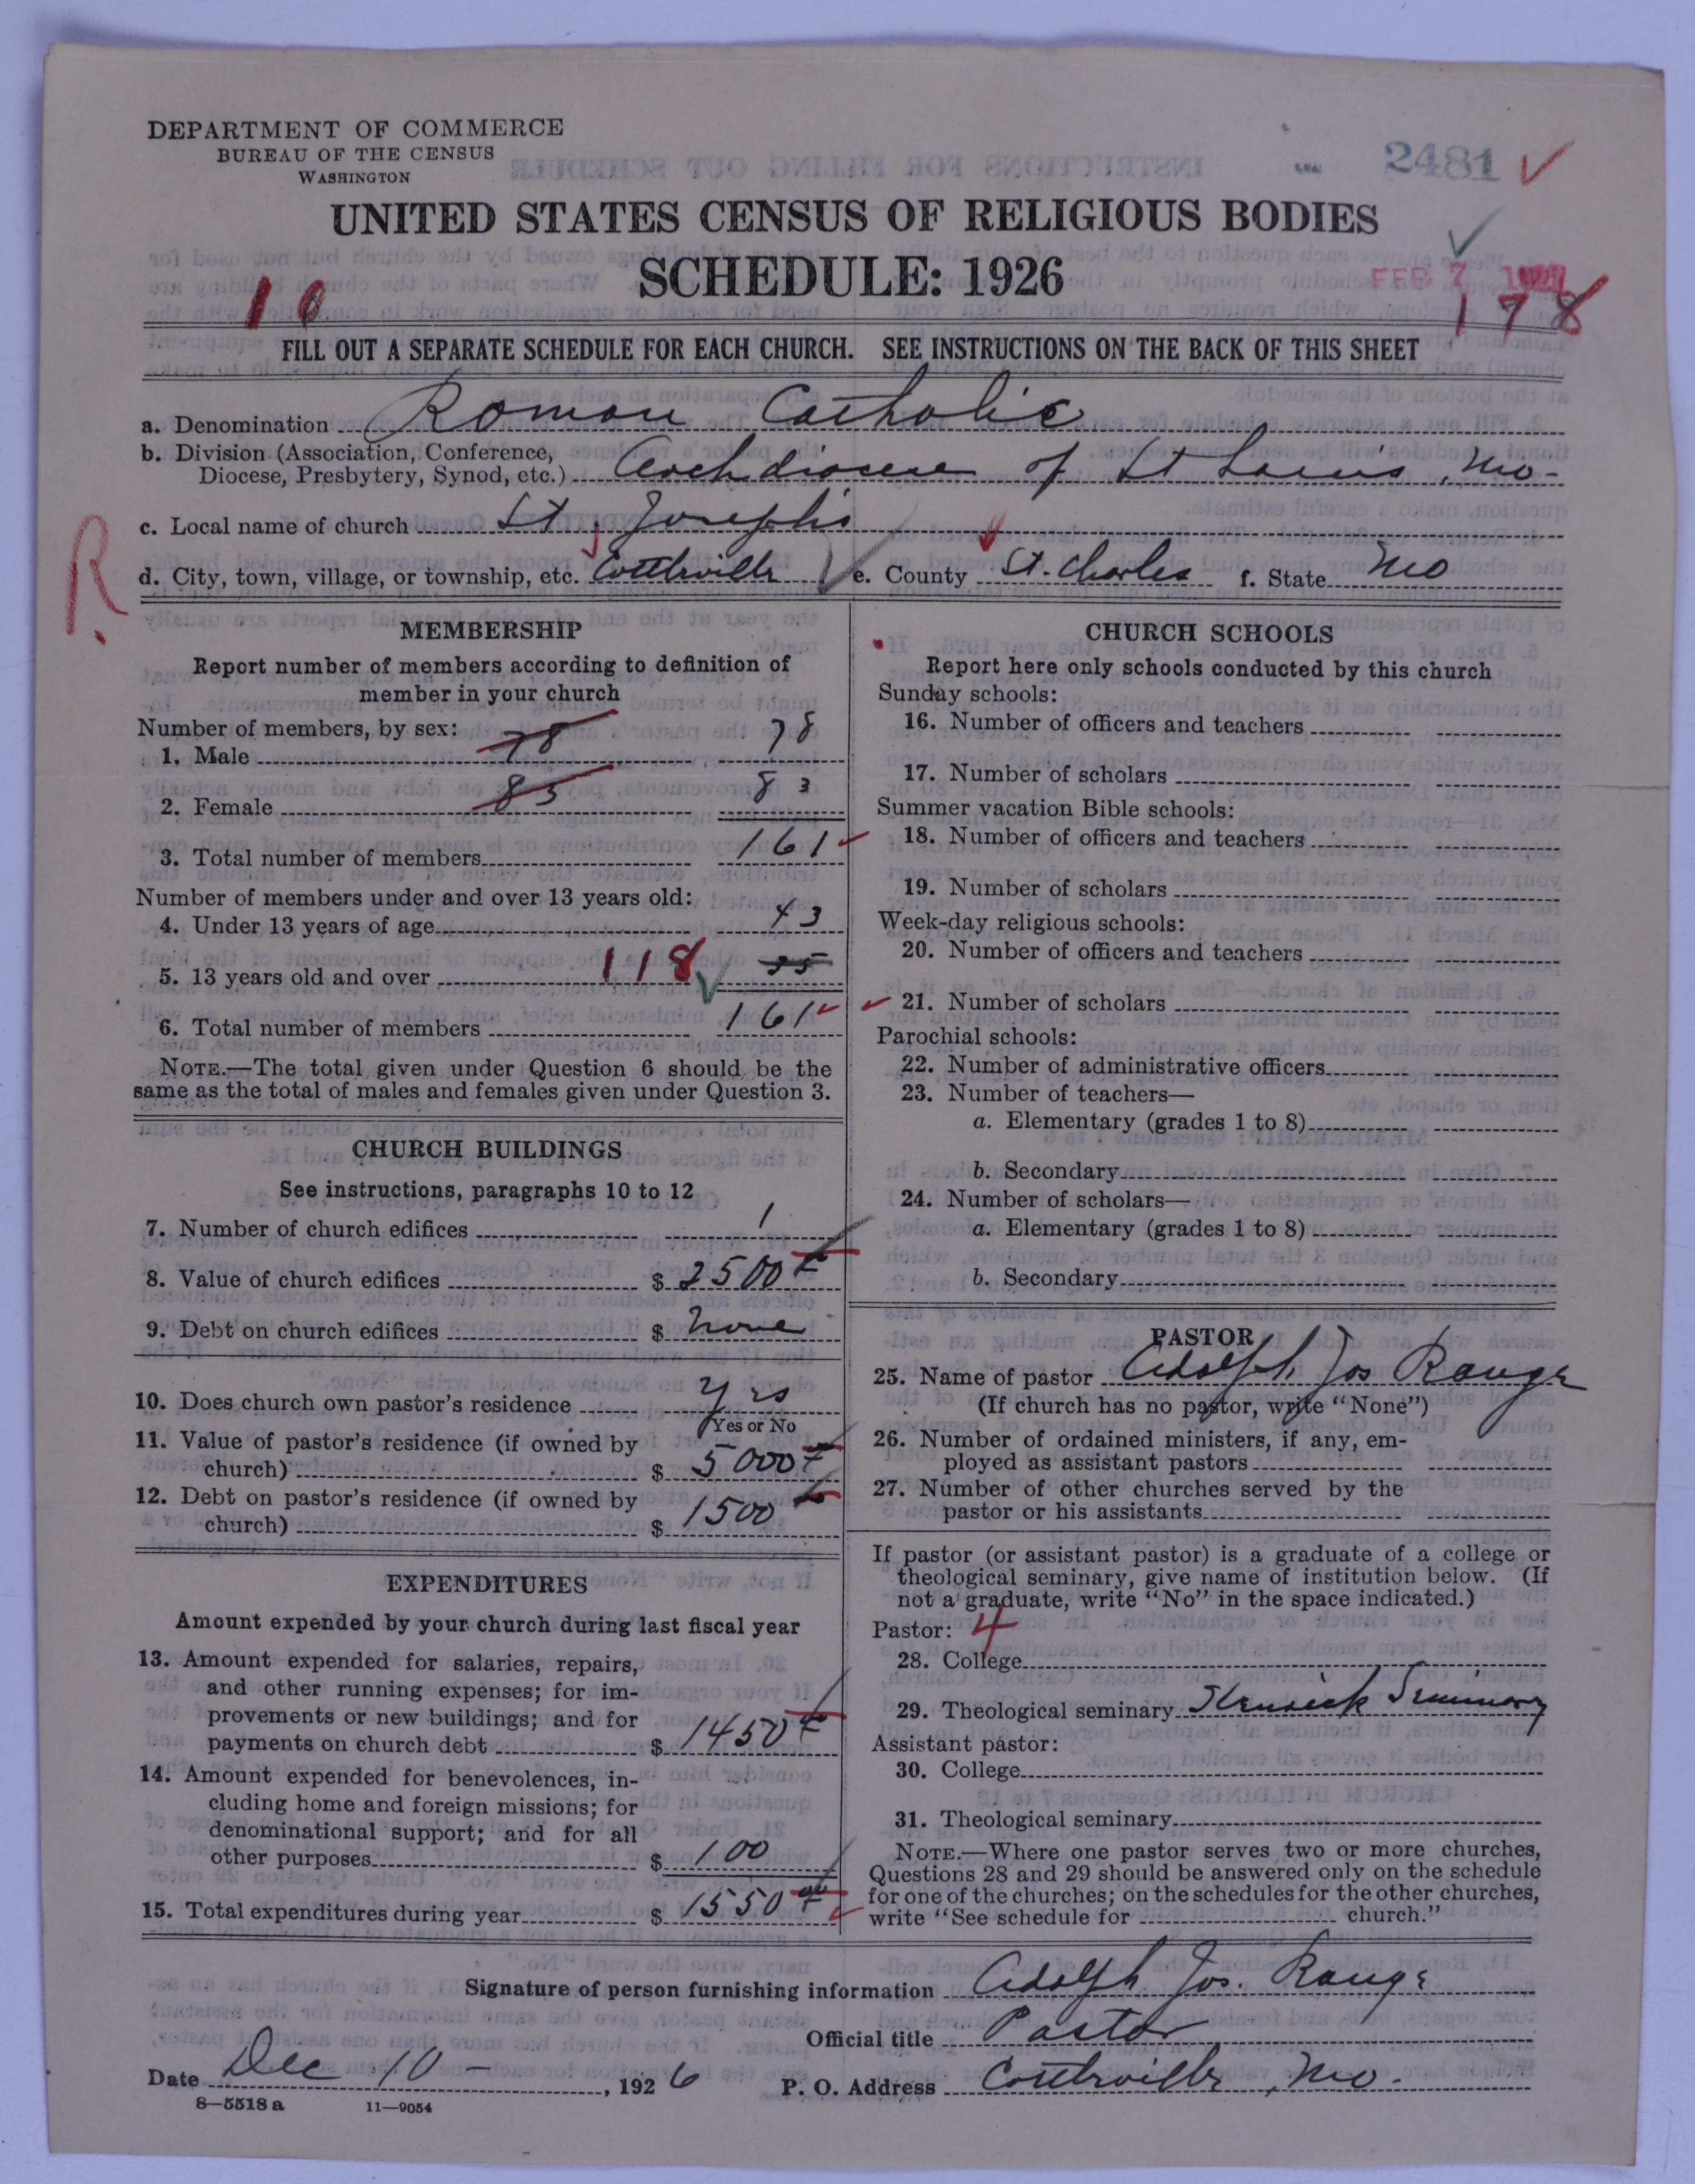 DEPARTMENT OF COMMERCE
BUREAU OF THE CENSUS
WASHINGTON
2481
UNITED STATES CENSUS OF RELIGIOUS BODIES
SCHEDULE: 1926
FEB 7 1927
10
178
FILL OUT A SEPARATE SCHEDULE FOR EACH CHURCH. SEE INSTRUCTIONS ON THE BACK OF THIS SHEET
a. Denomination Roman Catholic
b. Division (Association, Conference,
Diocese, Presbytery, Synod, etc.) Archdiocese of St Louis, Mo-
c. Local name of church St. Josephs
R
d. City, town, village, or township, etc. Cottleville e. County St. Charles f. State Mo
MEMBERSHIP
Report number of members according to definition of
member in your church
Number of members, by sex:
1. Male 78 78
2. Female 83 83
3. Total number of members 161
Number of members under and over 13 years old:
4. Under 13 years of age 43
5. 13 years old and over 118
6. Total number of members 161
NOTE.—The total given under Question 6 should be the
same as the total of males and females given under Question 3.
CHURCH BUILDINGS
See instructions, paragraphs 10 to 12
7. Number of church edifices 1
8. Value of church edifices $ 2500
9. Debt on church edifices $ None
10. Does church own pastor's residence Yes
Yes or No
11. Value of pastor's residence (if owned by
church) $ 5000
12. Debt on pastor's residence (if owned by
church) $ 1500
EXPENDITURES
Amount expended by your church during last fiscal year
13. Amount expended for salaries, repairs,
and other running expenses; for im-
provements or new buildings; and for
payments on church debt $ 1450
14. Amount expended for benevolences, in-
cluding home and foreign missions; for
denominational support; and for all
other purposes $ 100
15. Total expenditures during year $ 1550
CHURCH SCHOOLS
Report here only schools conducted by this church
Sunday schools:
16. Number of officers and teachers
17. Number of scholars
Summer vacation Bible schools:
18. Number of officers and teachers
19. Number of scholars
Week-day religious schools:
20. Number of officers and teachers
21. Number of scholars
Parochial schools:
22. Number of administrative officers
23. Number of teachers—
a. Elementary (grades 1 to 8)
b. Secondary
24. Number of scholars—
a. Elementary (grades 1 to 8)
b. Secondary
PASTOR
25. Name of pastor Adolph Jos Range
(If church has no pastor, write "None")
26. Number of ordained ministers, if any, em-
ployed as assistant pastors
27. Number of other churches served by the
pastor or his assistants
If pastor (or assistant pastor) is a graduate of a college or
theological seminary, give name of institution below. (If
not a graduate, write "No" in the space indicated.)
Pastor: 4
28. College
29. Theological seminary Kenrick Seminary
Assistant pastor:
30. College
31. Theological seminary
NOTE.—Where one pastor serves two or more churches,
Questions 28 and 29 should be answered only on the schedule
for one of the churches; on the schedules for the other churches,
write "See schedule for church."
Signature of person furnishing information Adolph Jos. Range
Official title Pastor
Date Dec 10 - , 1926 P. O. Address Cottleville, Mo.
8—5518 a 11—9054